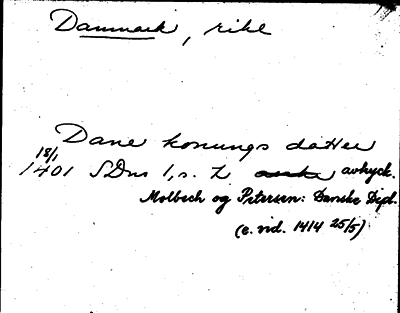 Danmark, rike
Dane konungs datter
18/1
1401 SDns 1, s. 2 avtryck.
Molbech og Petersen: Danske Dipl.
(e. vid. 1414 25/5)